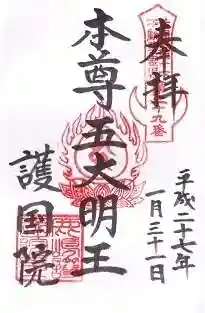 奉拝
本尊五大明王
護国院
平成二十七年
一月三十一日